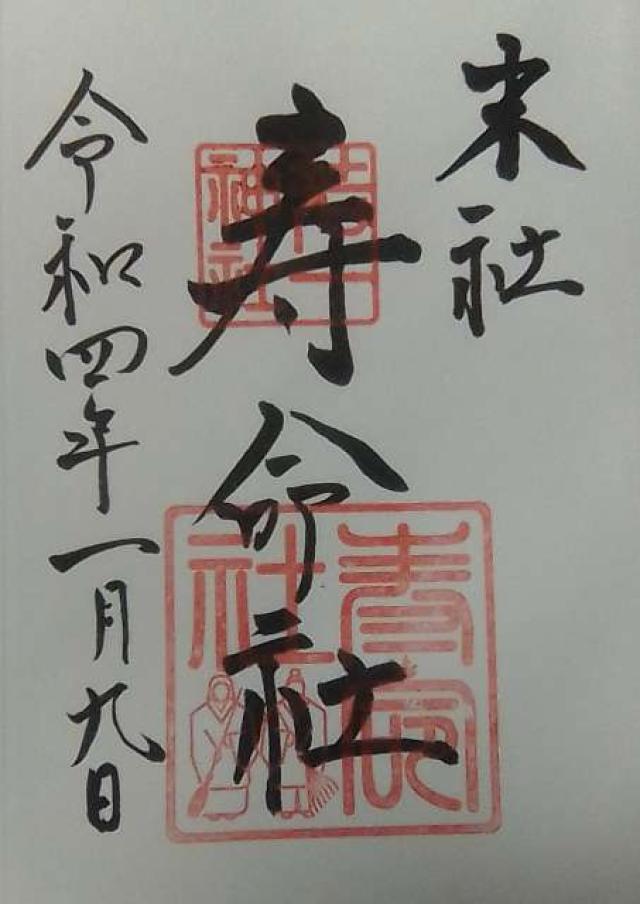 末社
寿命社
令和四年一月九日
寿命社